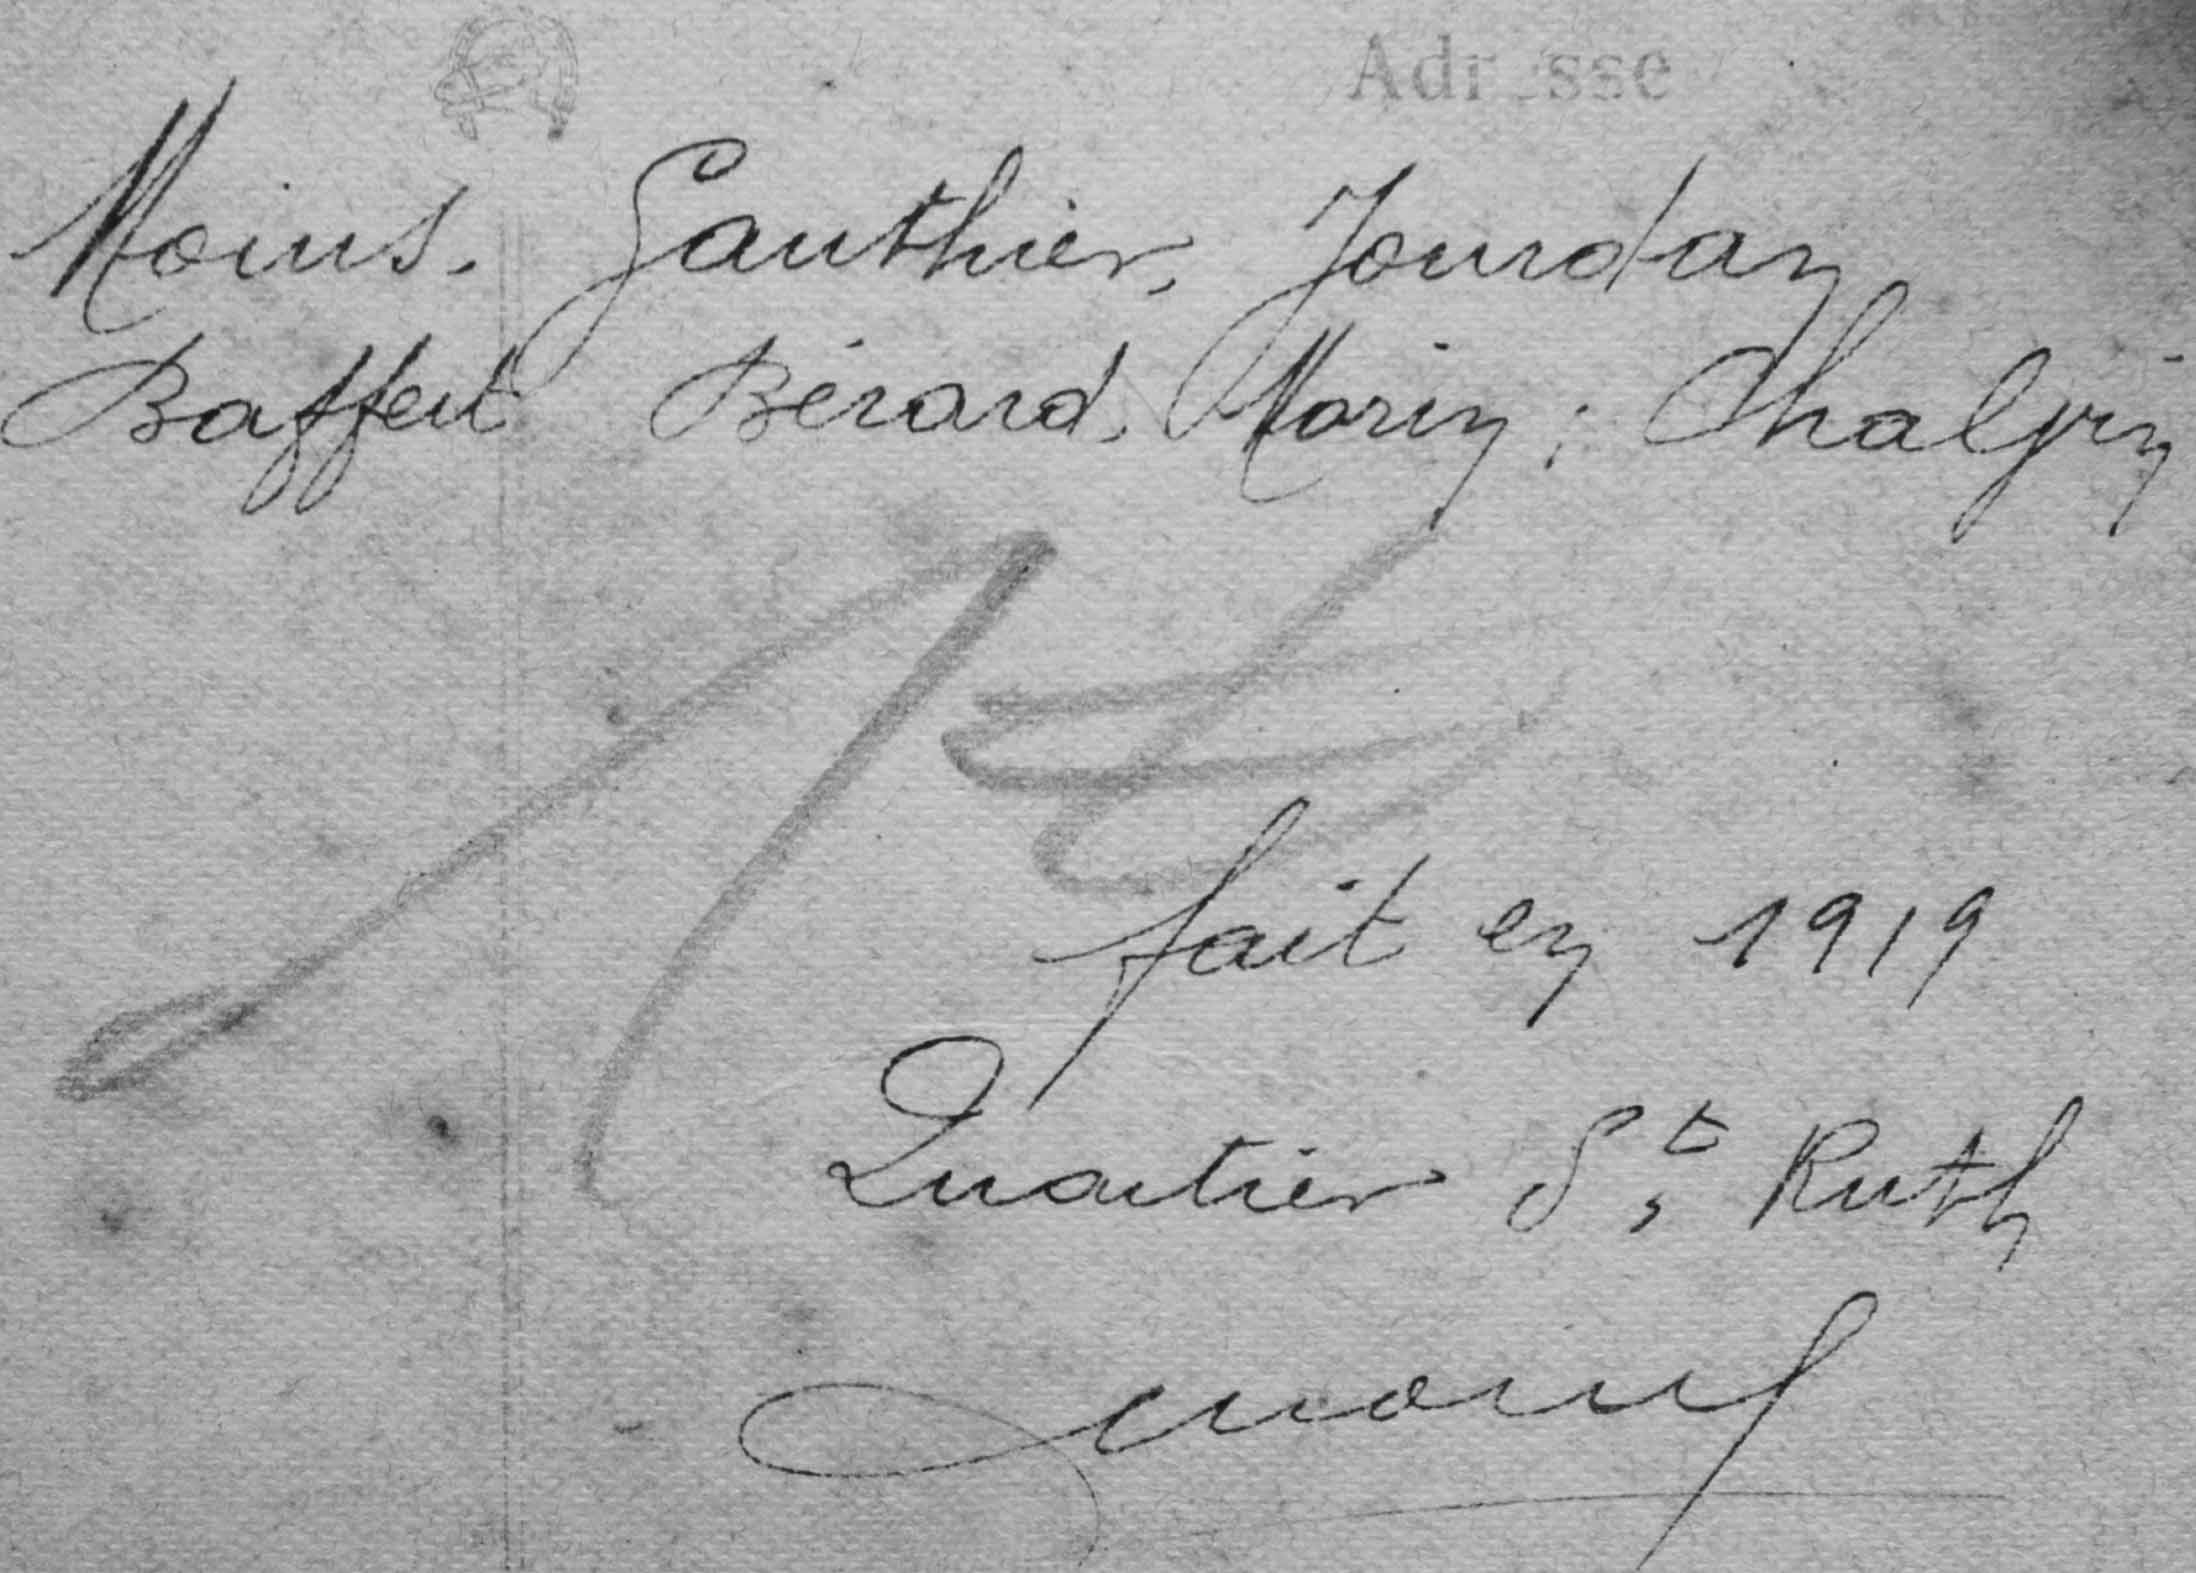 Adresse
Moins. Gauthier, Jourdan
Baffert Bérard. Morin; Chalvin
fait en 1919
Quartier St. Ruth